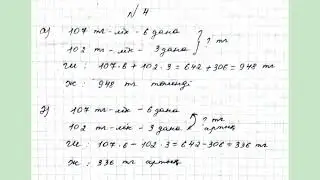 № 4
а) 107 тг - мөк - 6 дана
102 тг - мөк - 3 дана } ? тг
Ш: 107·6 + 102·3 = 642 + 306 = 948 тг
Ж: 948 тг төленді
ә) 107 тг - мөк - 6 дана
102 тг - мөк - 3 дана ? тг артық
Ш: 107·6 - 102·3 = 642 - 306 = 336 тг
Ж: 336 тг артық